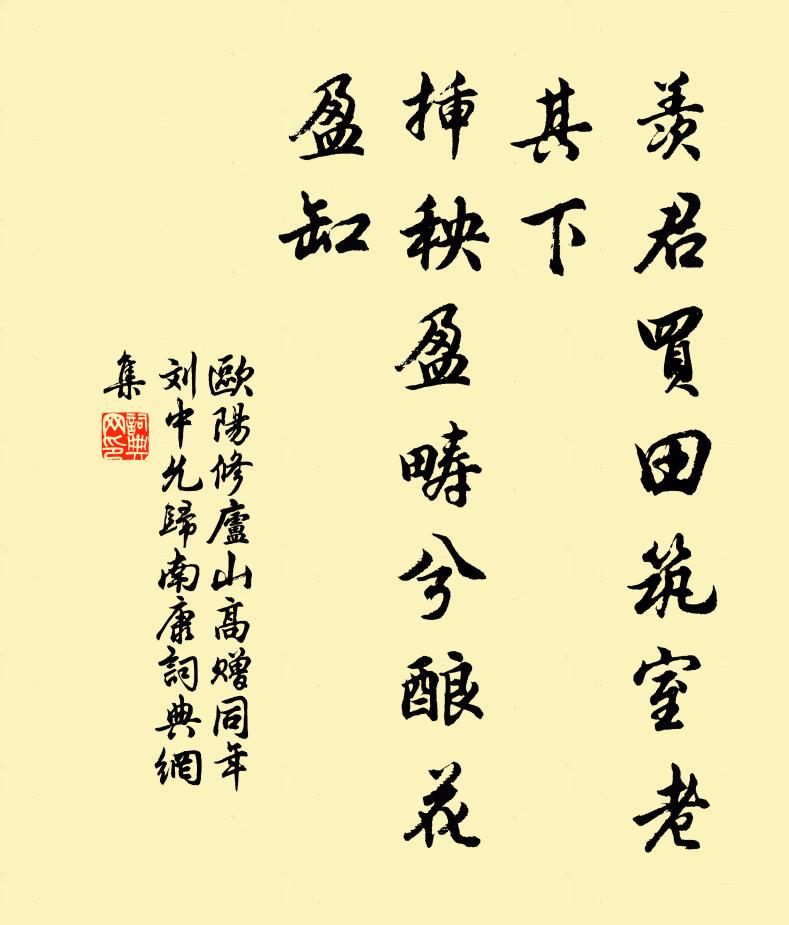 羨君買田筑室老
其下
挿秧盈疇兮酿花
盈缸
歐陽修廬山高赠同年
刘中允歸南康詞典網
集
詞典網印